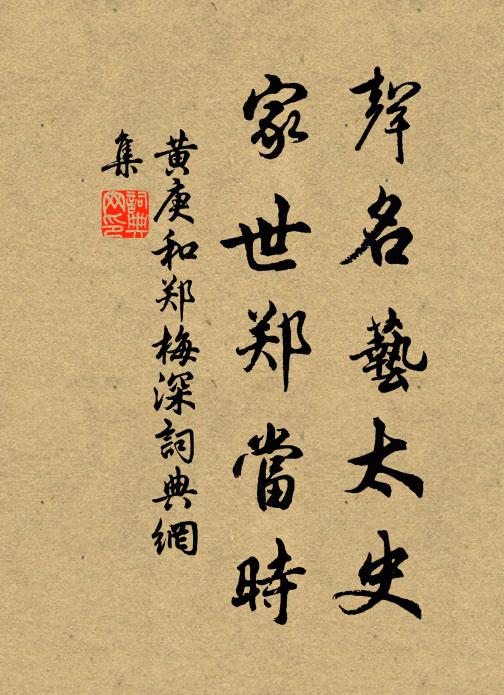 聲名藝太史
家世郑當時
黄庚和郑梅深詞典網
集
詞典网印